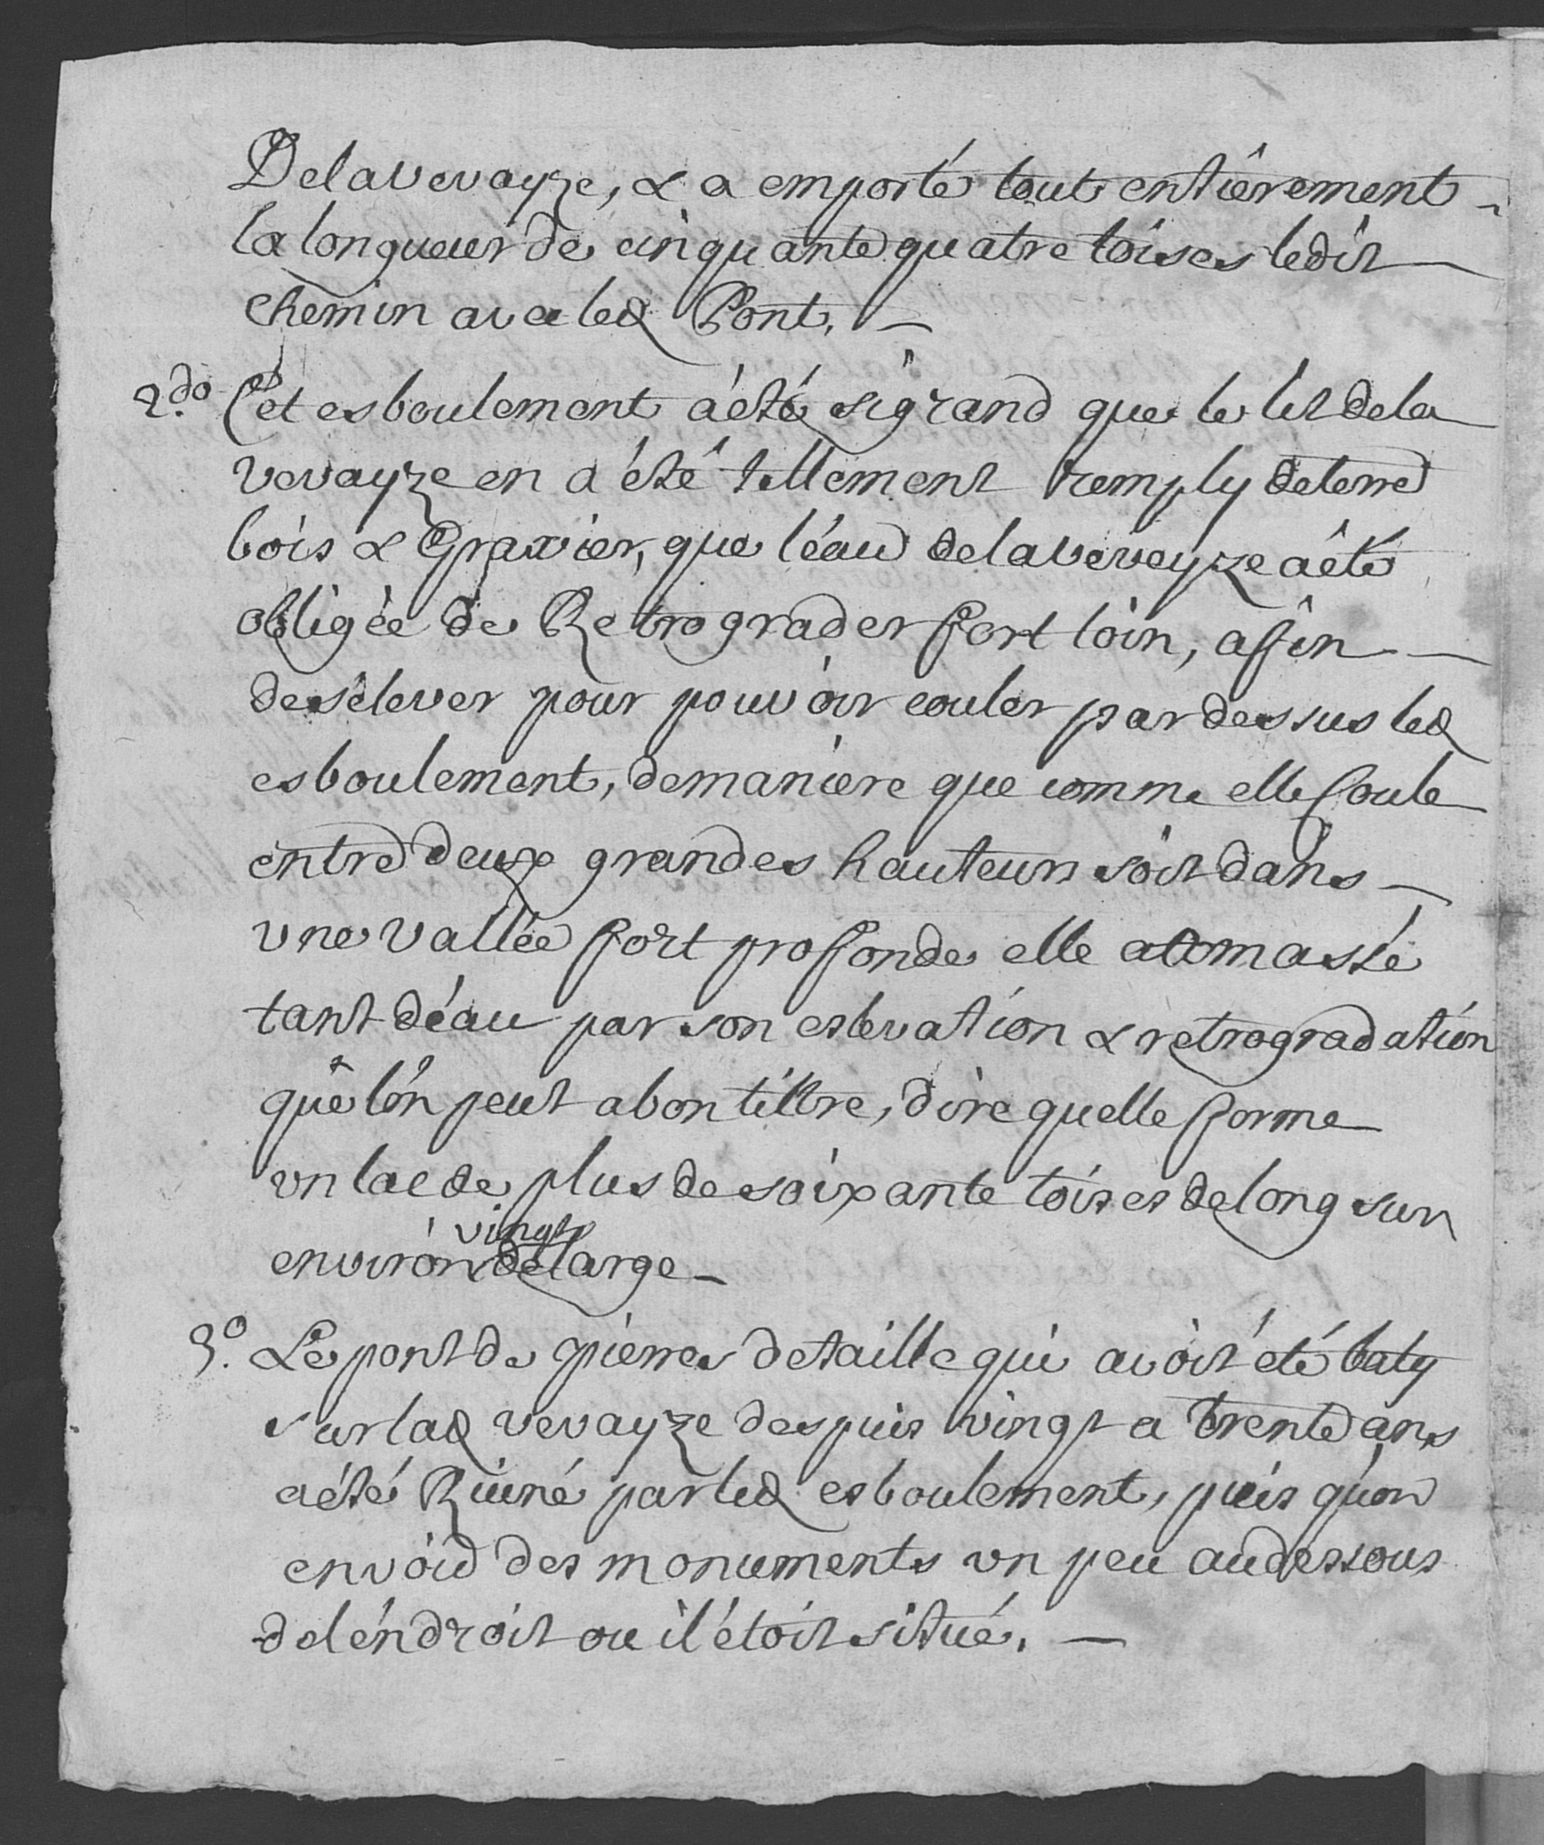 Delavevayze, & a emporté tout entiêrement
la longueur de cinquante quatre toises ledit
chemin avec led Pont. —
2.do Cét esboulement a été si grand que le lit de la
vevayze en a été tellement remply deterre
bois & Gravier, que léau delaveveyze a êté
obligée de Retrograder fort loin, affin —
desélever pour pouvoir couler pardessus led
esboulement, demaniere que comme elle Coule
entre deux grandes hauteurs soit dans —
vne vallée fort proffonde elle a amassé
tant déau par son eslevation & retrogradation
que lón peut abon tiltre, dire quelle forme
vn lac de plus de soixante toises delong sur
environ vingt de large —
3.o Le pont de pierres detaille qui avoit été baty
sur lad vevayze despuis vingt a trente ans
a été Ruiné parled esboulement, puis quon
envoid des monuments vn peu audessous
deléndroit ou il étoit situé. —